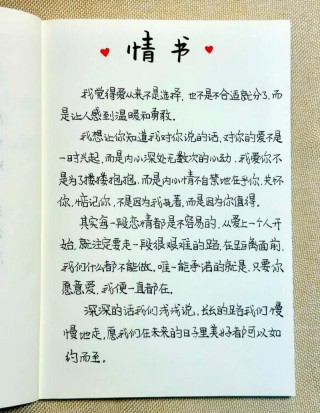 情书
我觉得爱从来不是选择，也不是不合适就分了，而
是让人感到温暖和勇敢。
我想让你知道我对你说的话，对你的爱不是
一时兴起，而是内心深处无数次的心动，我爱你不
是为了搂搂抱抱，而是内心情不自禁地在乎你，关怀
你，惦记你，不是因为我执着，而是因为你值得。
其实每一段恋情都是不容易的，从爱上一个人开
始，就注定要走一段很艰难的路，在距离面前，
我们什么都不能做。唯一能承诺的就是，只要你
愿意爱，我便一直都在。
深深的话我们浅浅说，长长的路我们慢
慢地走，愿我们在未来的日子里美好都可以如
约而至。